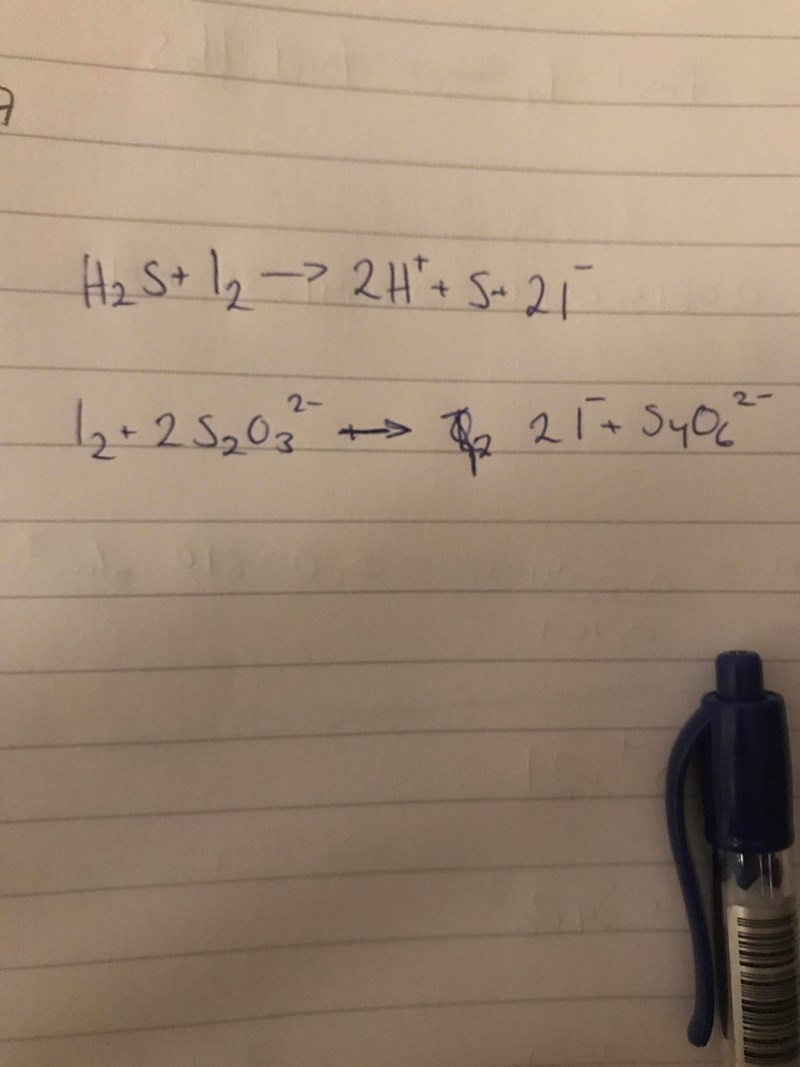 H₂S + I₂ → 2H⁺ + S + 2I⁻
I₂ + 2S₂O₃²⁻ → 2I⁻ + S₄O₆²⁻